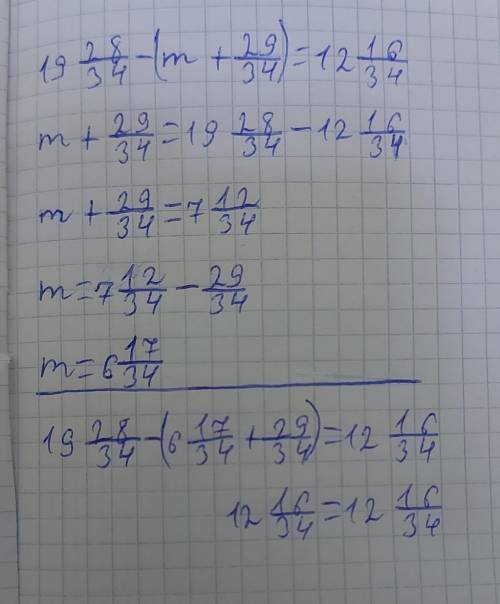 19 28/34 - (m + 29/34) = 12 16/34
m + 29/34 = 19 28/34 - 12 16/34
m + 29/34 = 7 12/34
m = 7 12/34 - 29/34
m = 6 17/34
19 28/34 - (6 17/34 + 29/34) = 12 16/34
12 16/34 = 12 16/34